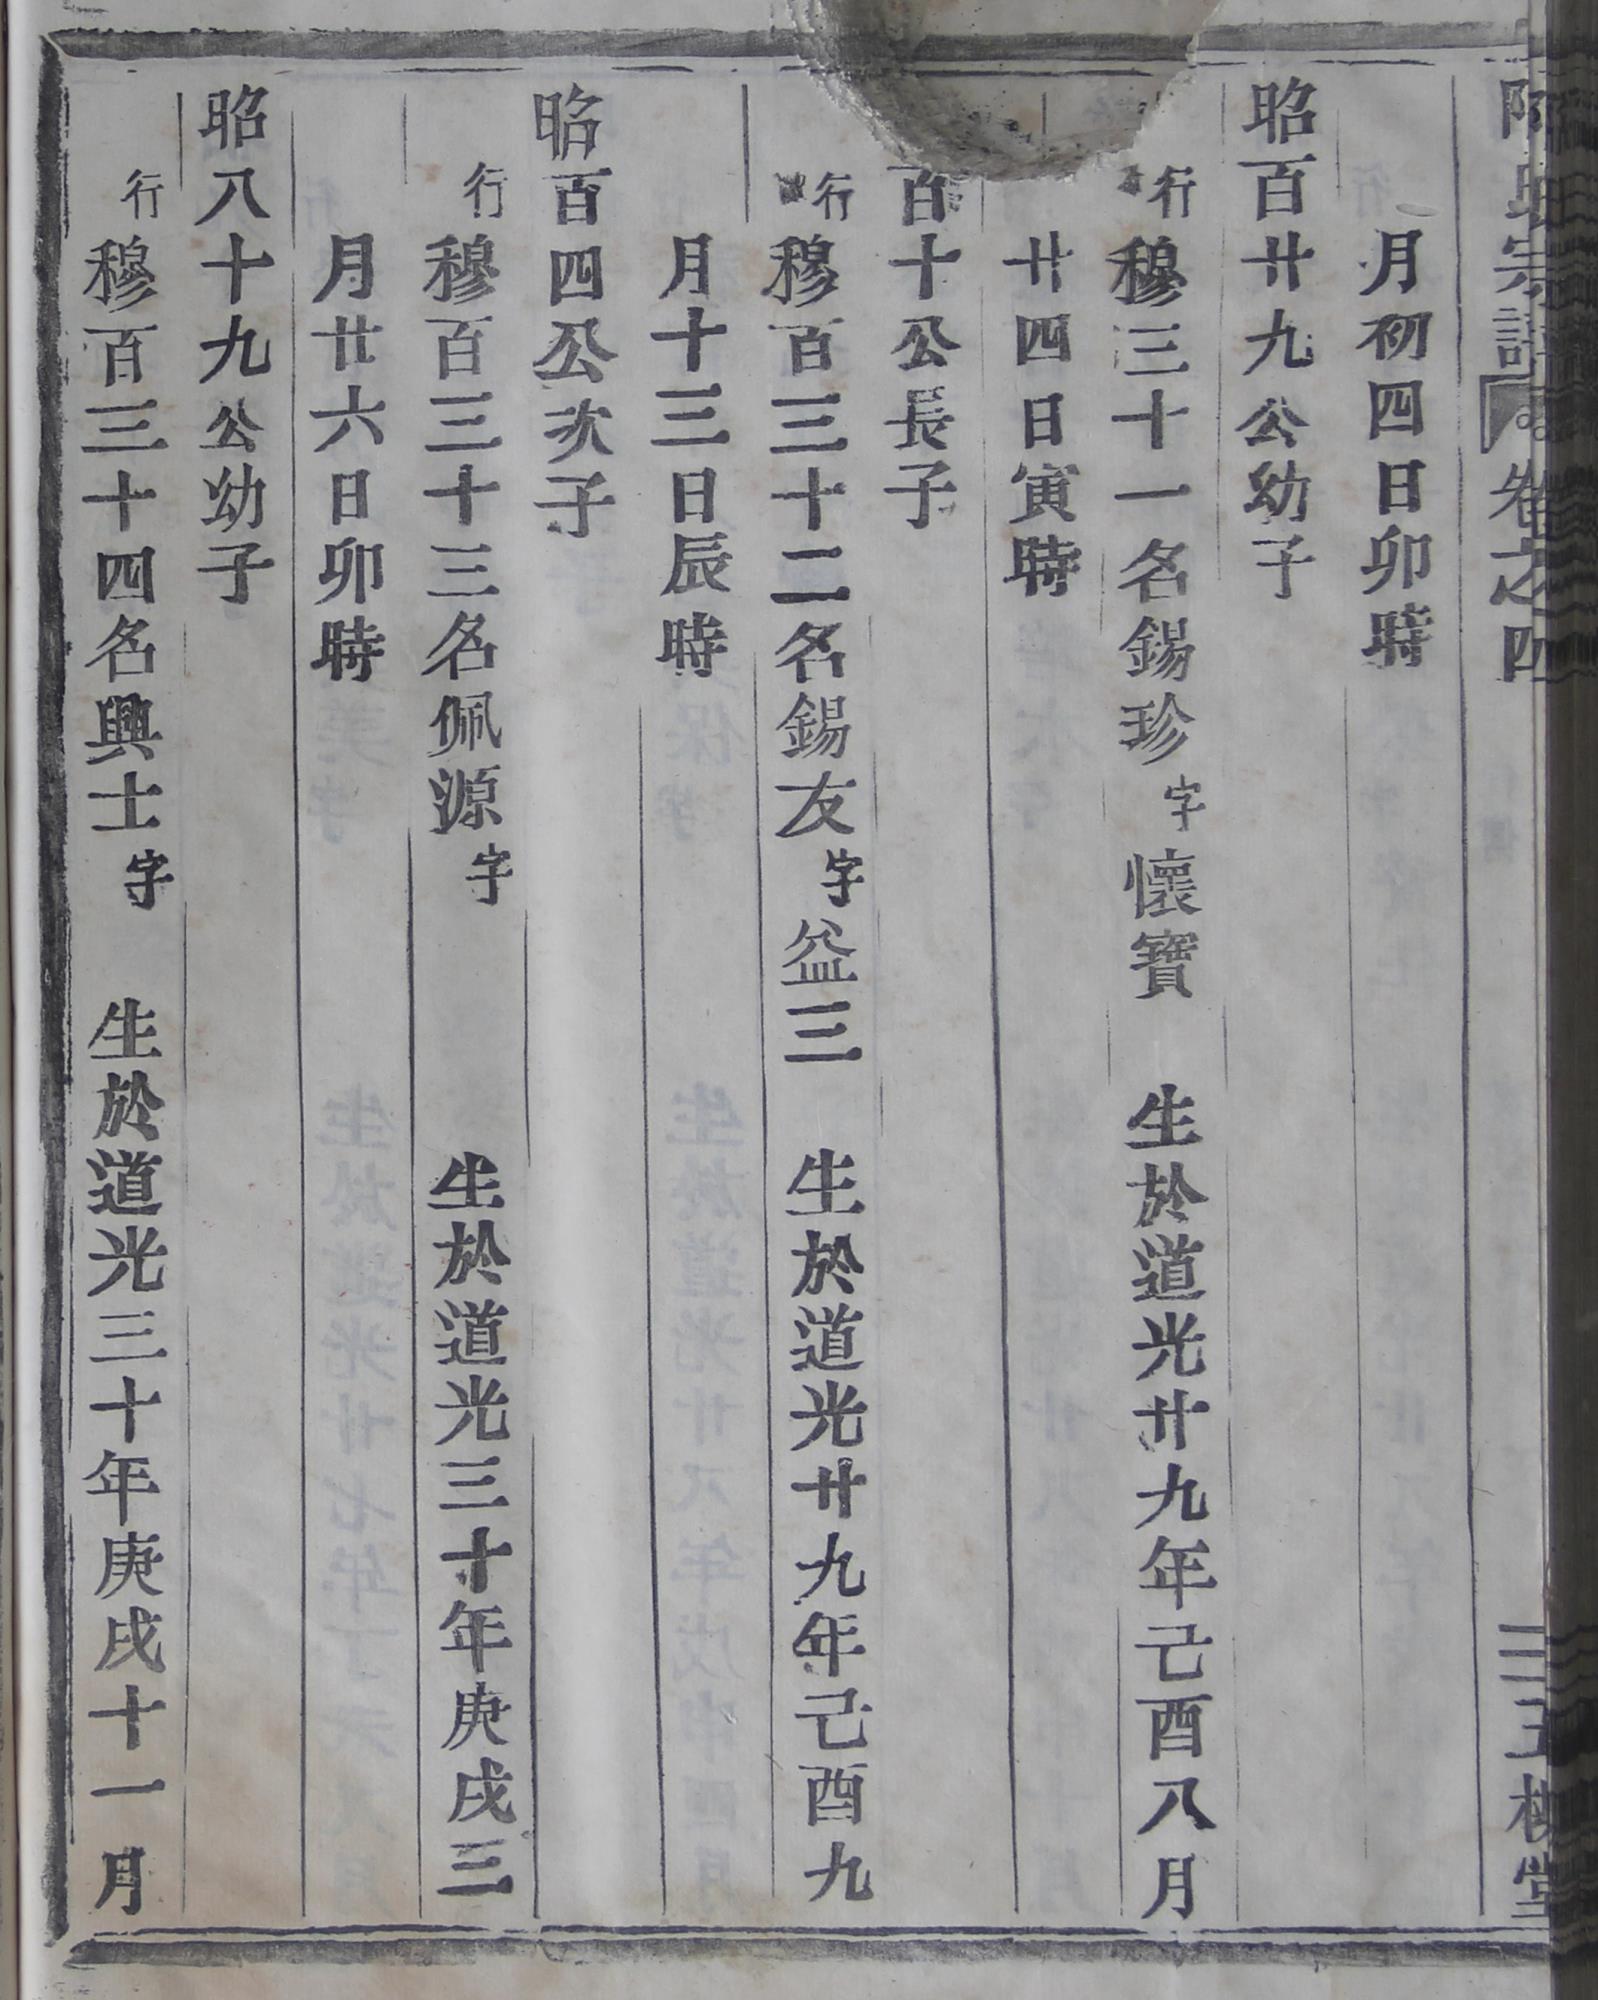 宗譜 卷之四 三 五柳堂
月初四日卯時
昭百廿九公幼子
行穆三十一名錫珍字懷寶 生於道光廿九年己酉八月
廿四日寅時
百十公長子
行穆百三十二名錫友字益三 生於道光廿九年己酉九
月十三日辰時
昭百四公次子
行穆百三十三名佩源字 生於道光三十年庚戌三
月廿六日卯時
昭八十九公幼子
行穆百三十四名興士字 生於道光三十年庚戌十一月